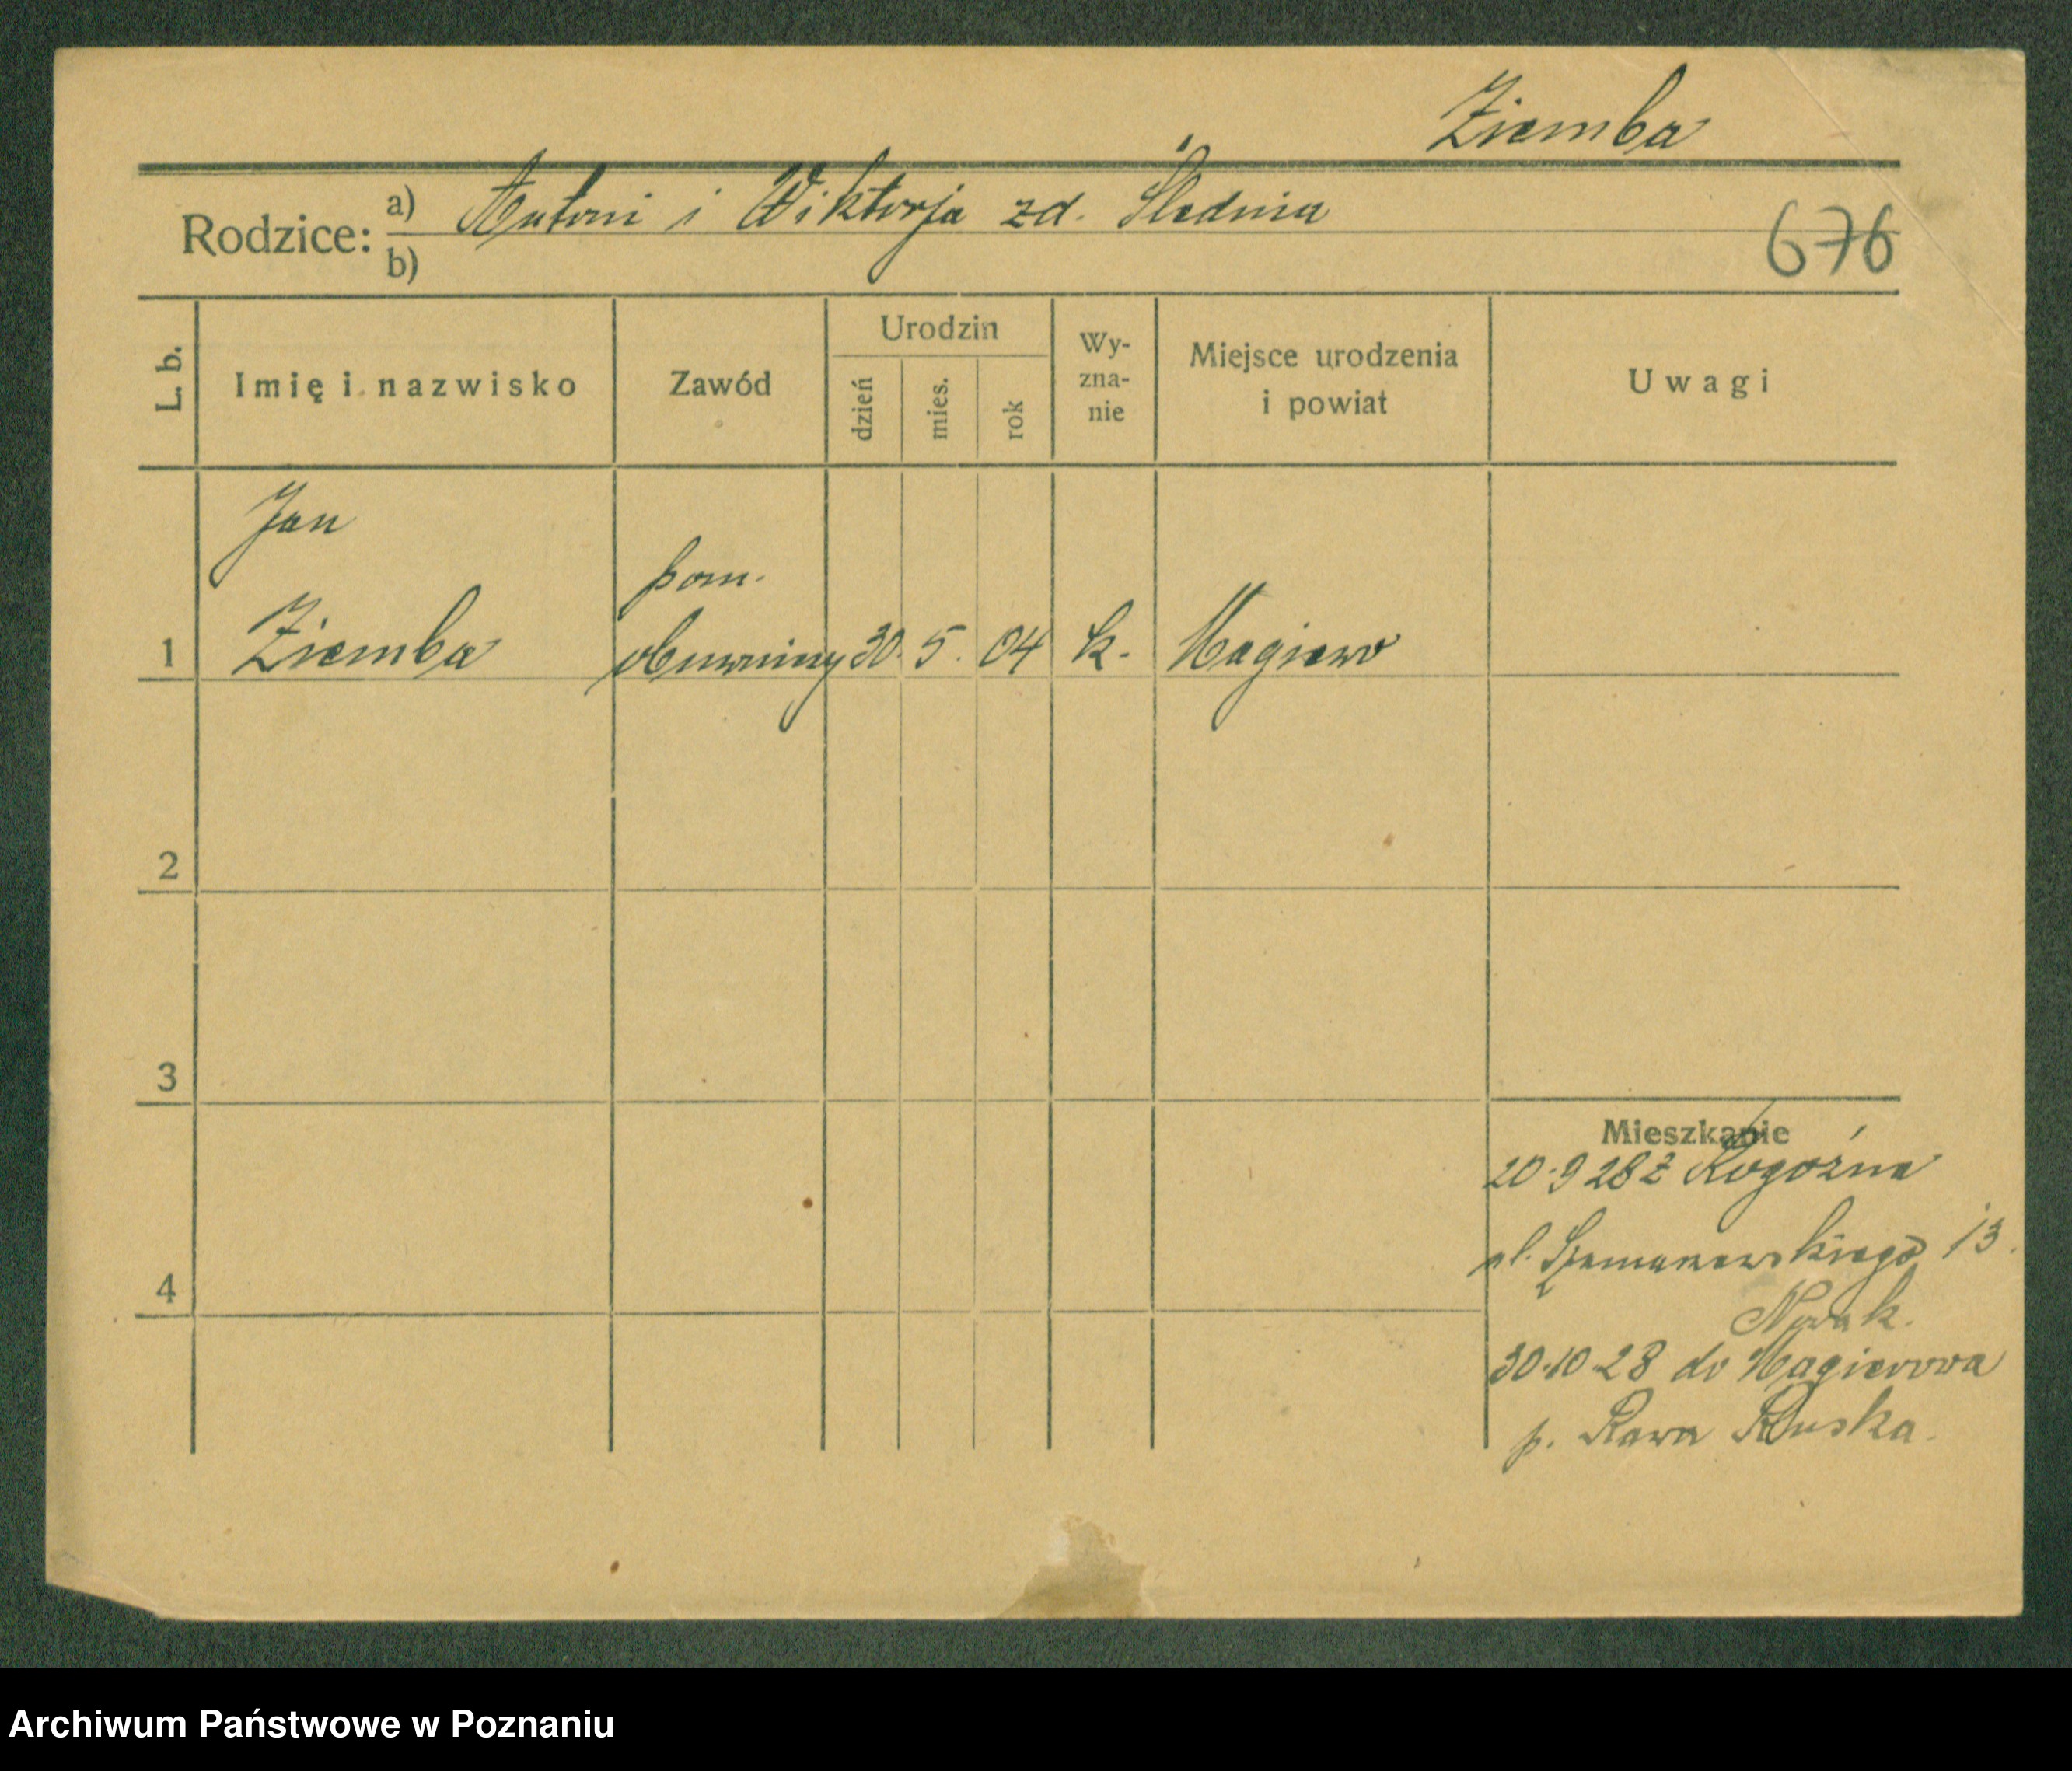 Ziemba
Rodzice: a) Antoni i Wiktorja zd. Slednia
b)
676
L. b. Imię i nazwisko Zawód Urodzin dzień mies. rok Wy-zna-nie Miejsce urodzenia i powiat Uwagi
Jan
pom.
1 Ziemba 30. 5. 04 k. Magiewo
2
3
Mieszkanie
20.9 28 z Rogoźna
ul. 13.
4
Nowak.
30.10.28 do Magierowa
p. Rawa Ruska.
Archiwum Państwowe w Poznaniu